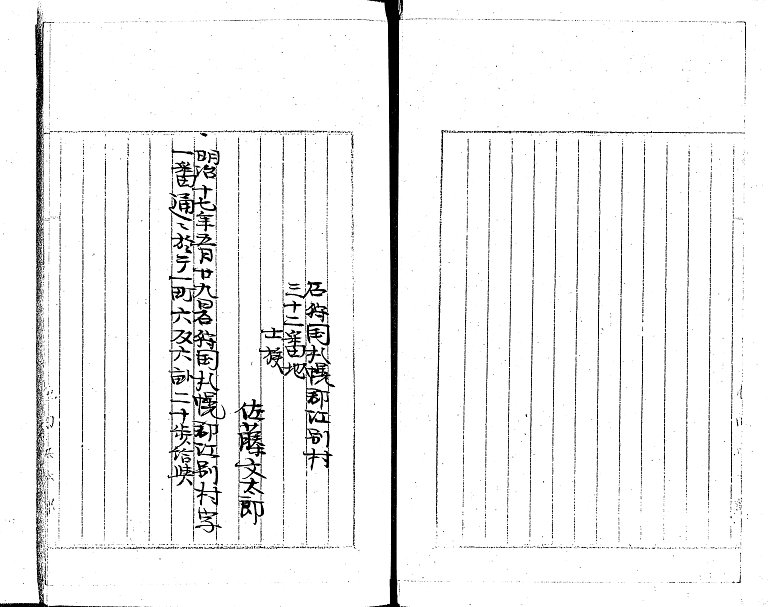 石狩国札幌郡江別村
三十二番地
士族
佐藤文太郎
明治十七年五月廿九日石狩国札幌郡江別村字
一番通ニ於テ一町六反六畝二十歩給与